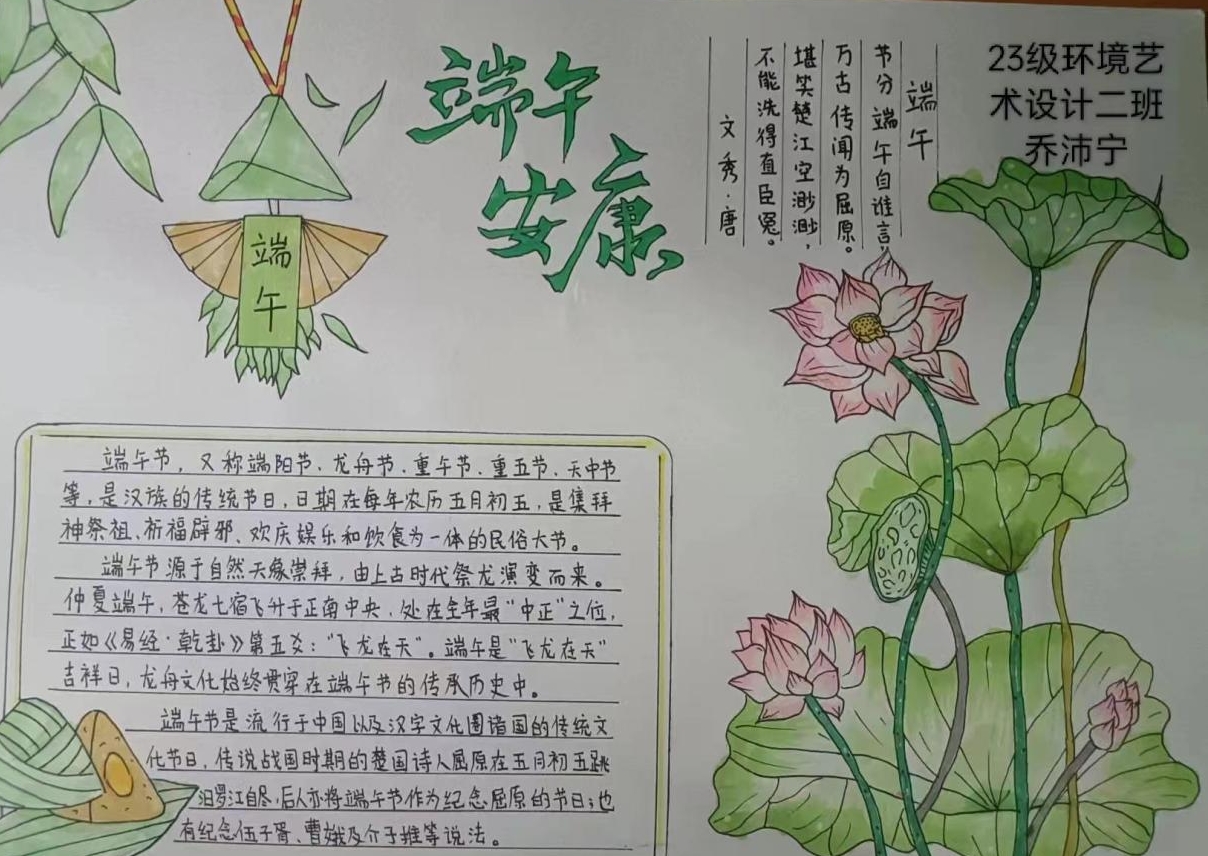 端午
安康
端
午
端午
节分端午自谁言，
万古传闻为屈原。
堪笑楚江空渺渺，
不能洗得直臣冤。
文秀·唐
23级环境艺
术设计二班
乔沛宁
端午节，又称端阳节、龙舟节、重午节、重五节、天中节
等，是汉族的传统节日，日期在每年农历五月初五，是集拜
神祭祖、祈福辟邪、欢庆娱乐和饮食为一体的民俗大节。
端午节源于自然天象崇拜，由上古时代祭龙演变而来。
仲夏端午，苍龙七宿飞升于正南中央，处在全年最“中正”之位，
正如《易经·乾卦》第五爻：“飞龙在天”。端午是“飞龙在天”
吉祥日，龙舟文化始终贯穿在端午节的传承历史中。
端午节是流行于中国以及汉字文化圈诸国的传统文
化节日，传说战国时期的楚国诗人屈原在五月初五跳
汨罗江自尽，后人亦将端午节作为纪念屈原的节日；也
有纪念伍子胥、曹娥及介子推等说法。